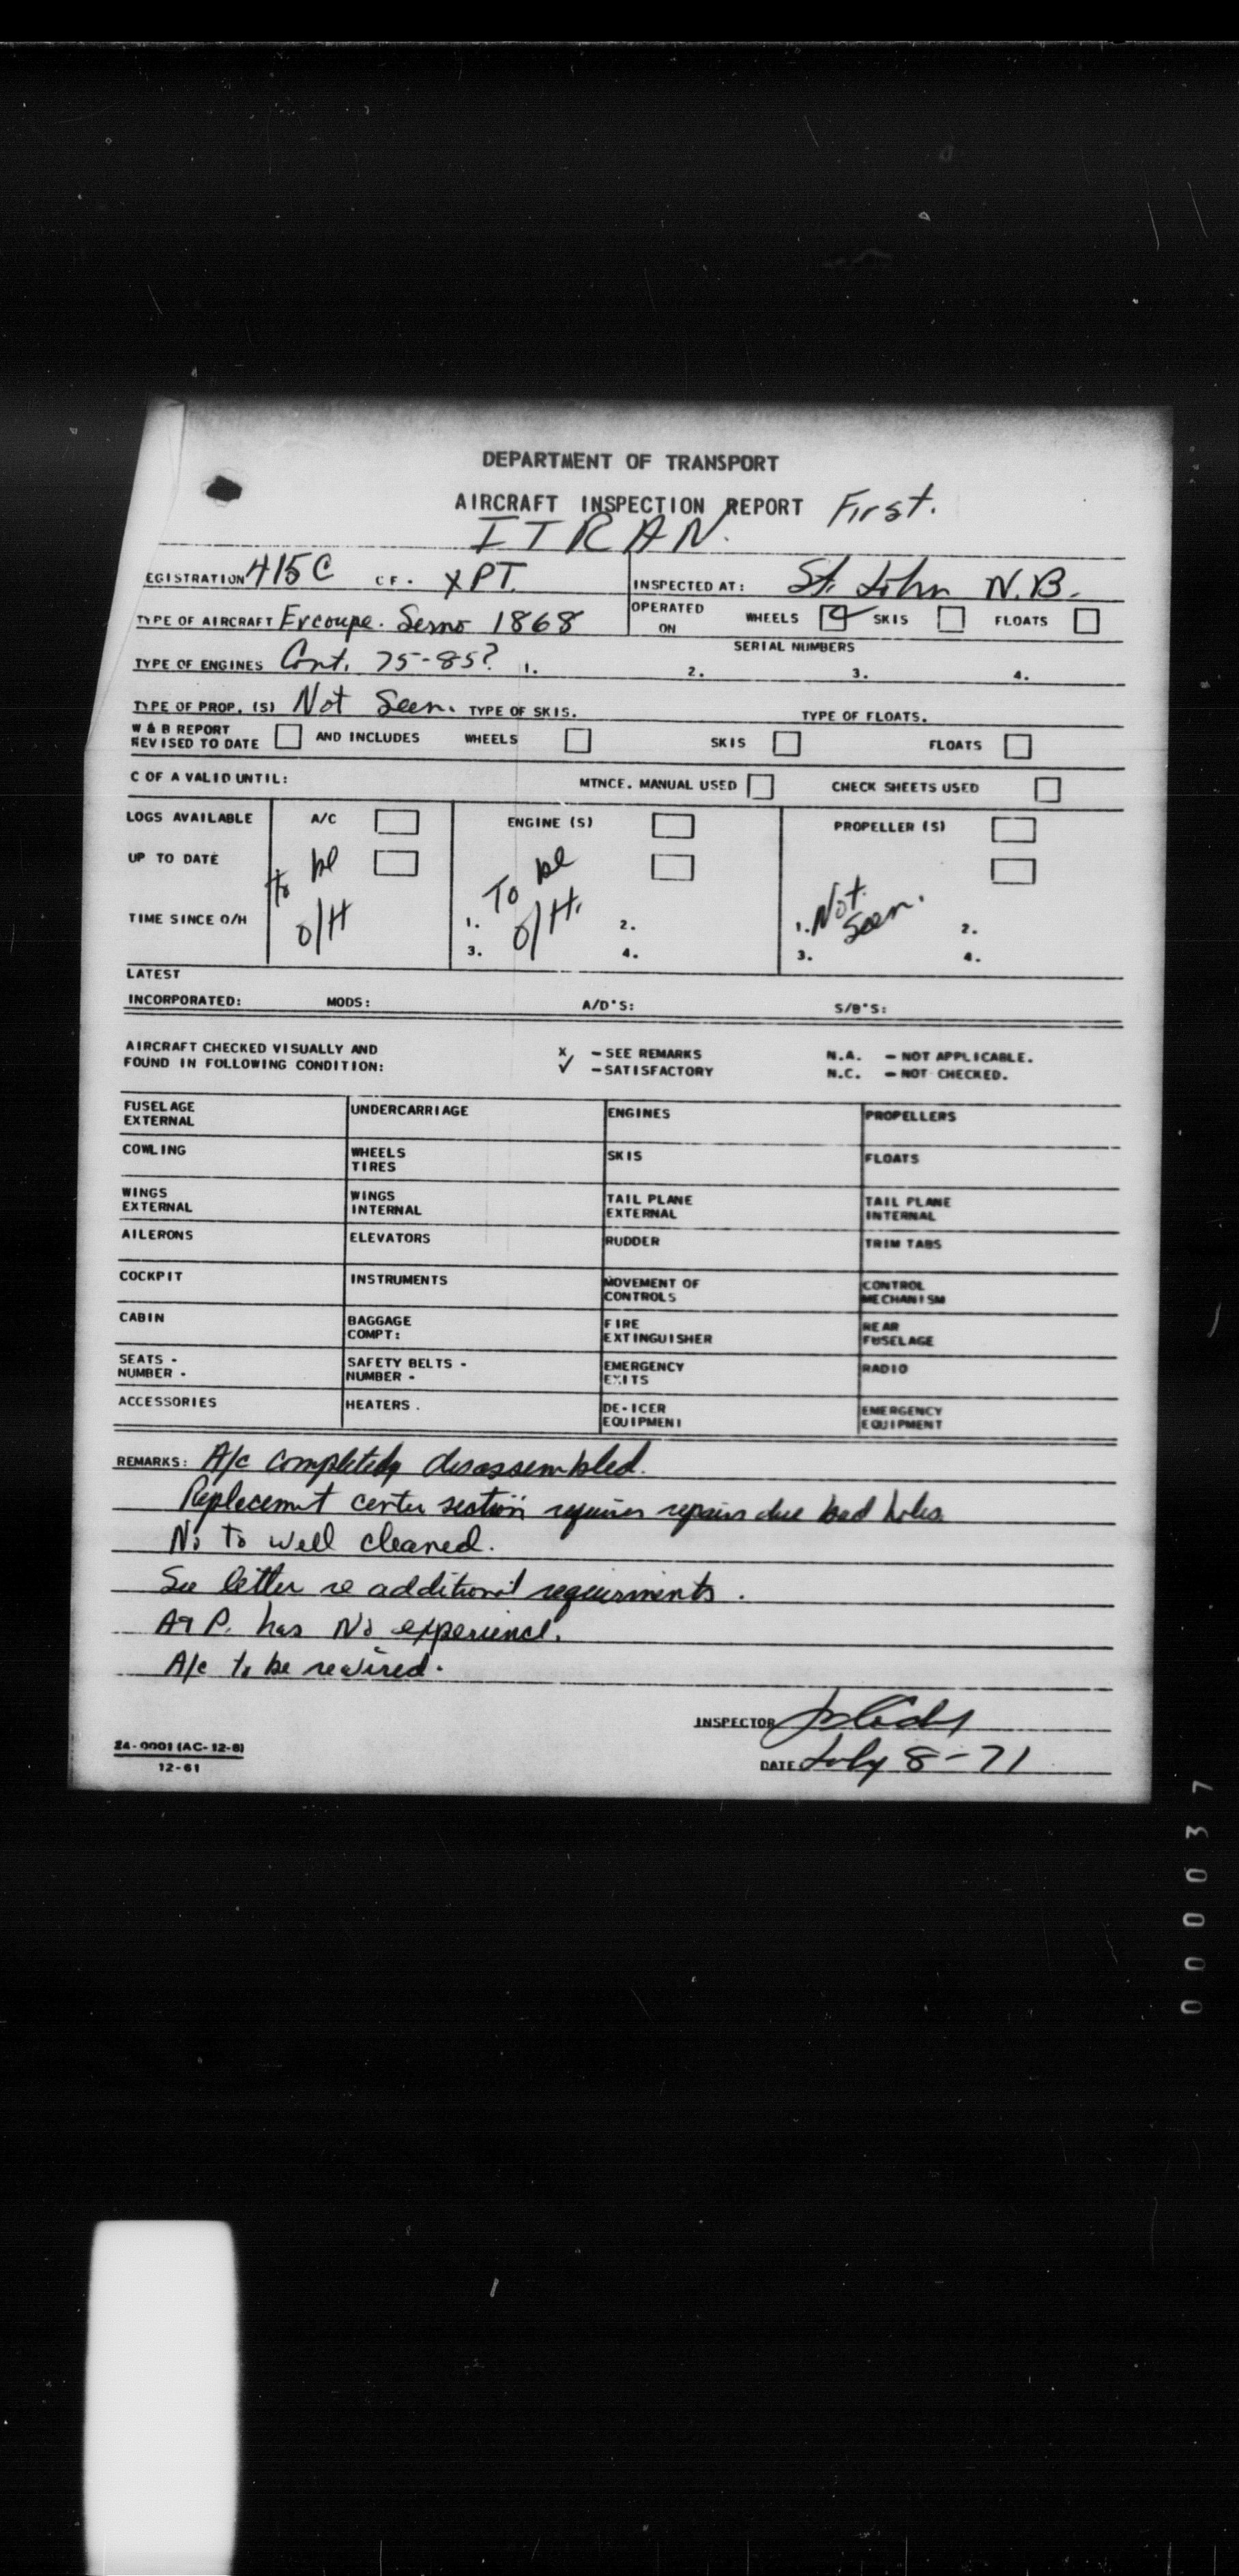 DEPARTMENT OF TRANSPORT
AIRCRAFT INSPECTION REPORT First.
ITRAN.
EGISTRATION 415C CF. XPT. INSPECTED AT: St. John N.B.
TYPE OF AIRCRAFT Ercoupe. Serno 1868 OPERATED ON WHEELS SKIS FLOATS
SERIAL NUMBERS
TYPE OF ENGINES Cont. 75-85? 1. 2. 3. 4.
TYPE OF PROP. (S) Not Seen. TYPE OF SKIS. TYPE OF FLOATS.
W & B REPORT
REVISED TO DATE AND INCLUDES WHEELS SKIS FLOATS
C OF A VALID UNTIL: MTNCE. MANUAL USED CHECK SHEETS USED
LOGS AVAILABLE A/C ENGINE (S) PROPELLER (S)
UP TO DATE to be To be
TIME SINCE O/H O/H 1. O/H. 2. 1. Not Seen. 2.
3. 4. 3. 4.
LATEST
INCORPORATED: MODS: A/D'S: S/B'S:
AIRCRAFT CHECKED VISUALLY AND X - SEE REMARKS N.A. - NOT APPLICABLE.
FOUND IN FOLLOWING CONDITION: ✓ - SATISFACTORY N.C. - NOT CHECKED.
FUSELAGE EXTERNAL UNDERCARRIAGE ENGINES PROPELLERS
COWLING WHEELS TIRES SKIS FLOATS
WINGS EXTERNAL WINGS INTERNAL TAIL PLANE EXTERNAL TAIL PLANE INTERNAL
AILERONS ELEVATORS RUDDER TRIM TABS
COCKPIT INSTRUMENTS MOVEMENT OF CONTROLS CONTROL MECHANISM
CABIN BAGGAGE COMPT: FIRE EXTINGUISHER REAR FUSELAGE
SEATS - NUMBER - SAFETY BELTS - NUMBER - EMERGENCY EXITS RADIO
ACCESSORIES HEATERS. DE-ICER EQUIPMENT EMERGENCY EQUIPMENT
REMARKS: A/c completely disassembled.
Replacement center section requires repairs due bad holes.
No to well cleaned.
See letter re additional requirments.
A&P. has No experience.
A/c to be rewired.
INSPECTOR
24-0001 (AC-12-8)
12-61
DATE July 8-71
000037